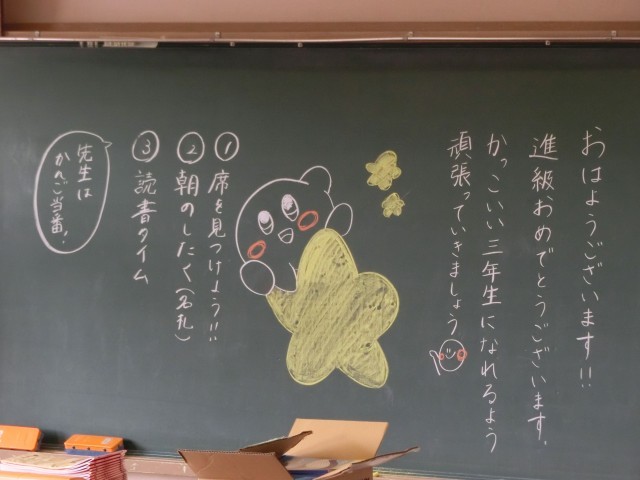 おはようございます!!
進級おめでとうございます。
かっこいい三年生になれるよう
頑張っていきましょう
①席を見つけよう!!
②朝のしたく(名札)
③読書タイム
先生は
かんご当番!